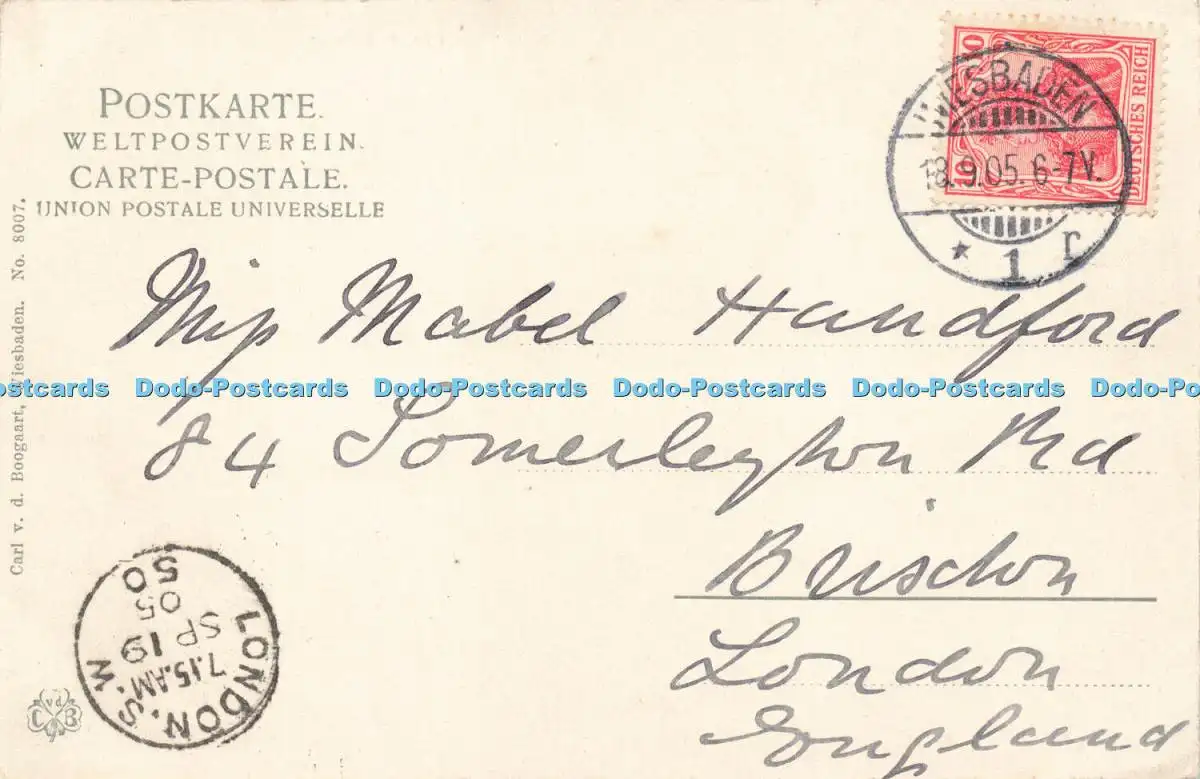 POSTKARTE.
WELTPOSTVEREIN.
CARTE-POSTALE.
UNION POSTALE UNIVERSELLE
10
10
DEUTSCHES REICH
WIESBADEN
18.9.05. 6-7V.
* 1 r
Miss Mabel Handford
ostcards Dodo-Postcards Dodo-Postcards Dodo-Postcards Dodo-Postcards Dodo-Po
84 Somerleyton Rd
Brixton
London
England
Carl v. d. Boogaart, Wiesbaden. No. 8007.
LONDON. S.W.
7.15.AM
SP 19
05
50
C v d B